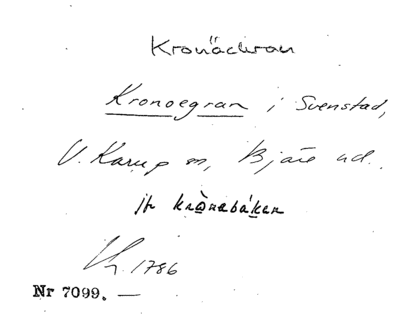 Kronäckran
Kronoegran i Svenstad,
V. Karup sn, Bjäre hd.
jfr krònebáken
1786
Nr 7099. —